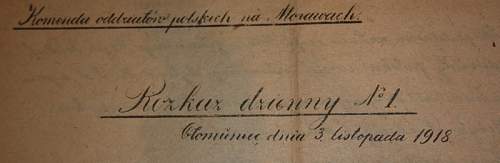 Komenda oddziałów polskich na Morawach.
Rozkaz dzienny № 1.
Ołomuniec, dnia 3. listopada 1918.